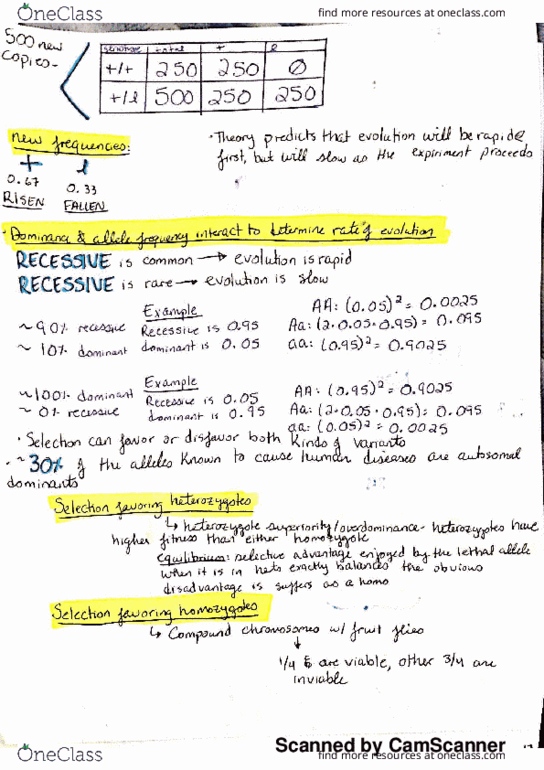 OneClass
find more resources at oneclass.com
500 new
copies-
genotype total + l
+/+ 250 250 0
+/l 500 250 250
new frequences:
+ l
0.67 0.33
RISEN FALLEN
· Theory predicts that evolution will be rapid @
first, but will slow as the expiriment proceeds
· Dominance & allele frequency interact to determine rate of evolution
RECESSIVE is common → evolution is rapid
RECESSIVE is rare → evolution is slow
Example
~90% recessive Recessive is 0.95
~10% dominant dominant is 0.05
AA: (0.05)² = 0.0025
Aa: (2·0.05·0.95) = 0.095
aa: (0.95)² = 0.9025
Example
~100% dominant Recessive is 0.05
~0% recessive dominant is 0.95
AA: (0.95)² = 0.9025
Aa: (2·0.05·0.95) = 0.095
aa: (0.05)² = 0.0025
· Selection can favor or disfavor both kinds of variants
· ~30% of the alleles known to cause human diseases are autosomal
dominants
Selection favoring heterozygotes
↳ heterozygote superiority/overdominance- heterozygotes have
higher fitness than either homozygote
equilibrium: selective advantage enjoyed by the lethal allele
when it is in hets exactly balances the obvious
disadvantage is suffers as a homo
Selection favoring homozygotes
↳ Compound chromosomes w/ fruit flies
↓
1/4 are viable, other 3/4 are
inviable
Scanned by CamScanner
OneClass
find more resources at oneclass.com